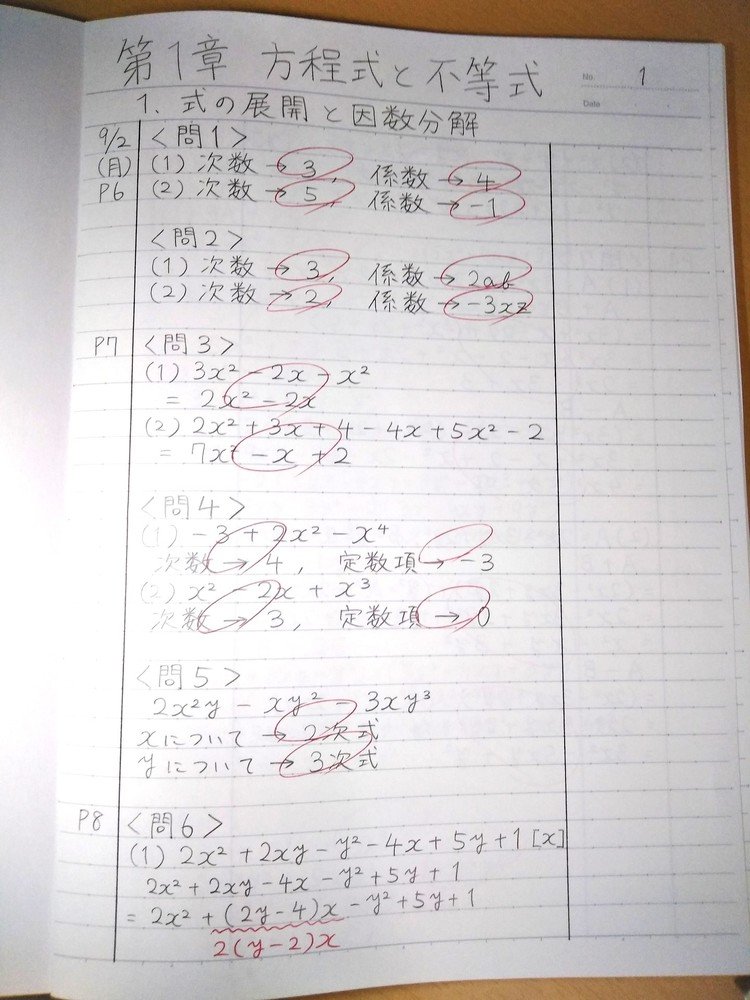 第1章 方程式と不等式
No. 1
Date
1. 式の展開と因数分解
9/2 <問1>
(月) (1) 次数→3, 係数→4
P6 (2) 次数→5, 係数→-1
<問2>
(1) 次数→3, 係数→2ab
(2) 次数→2, 係数→-3xz
P7 <問3>
(1) 3x² - 2x - x²
= 2x² - 2x
(2) 2x² + 3x + 4 - 4x + 5x² - 2
= 7x² - x + 2
<問4>
(1) -3 + 2x² - x⁴
次数→4, 定数項→-3
(2) x² - 2x + x³
次数→3, 定数項→0
<問5>
2x²y - xy² - 3xy³
xについて→2次式
yについて→3次式
P8 <問6>
(1) 2x² + 2xy - y² - 4x + 5y + 1 [x]
2x² + 2xy - 4x - y² + 5y + 1
= 2x² + (2y - 4)x - y² + 5y + 1
2(y - 2)x